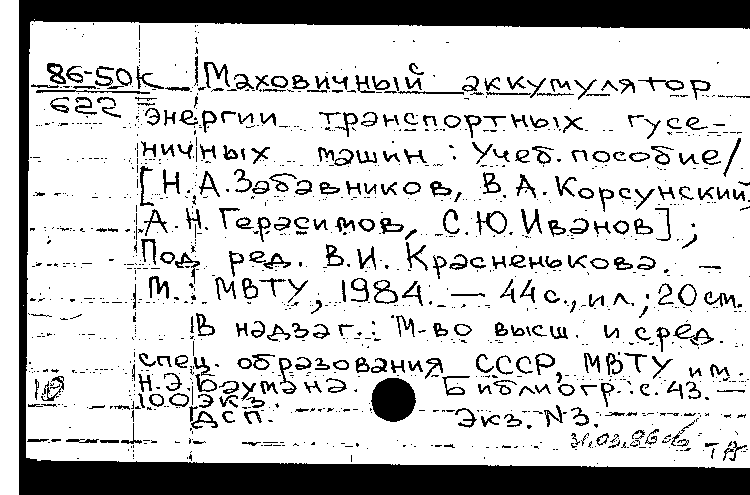 86-50к Маховичный аккумулятор
622 энергии транспортных гусе-
ничных машин : Учеб. пособие/
[Н.А.Забавников, В.А.Корсунский,
А.Н.Герасимов, С.Ю.Иванов] ;
Под ред. В.И.Красненькова. —
М.: МВТУ, 1984. — 44 с., ил.; 20 см.
В надзаг.: М-во высш. и сред.
спец. образования СССР, МВТУ им.
Н.Э.Баумана. Библиогр.: с. 43. —
10
100 экз.
ДСП. Экз. N3.
31.03.86